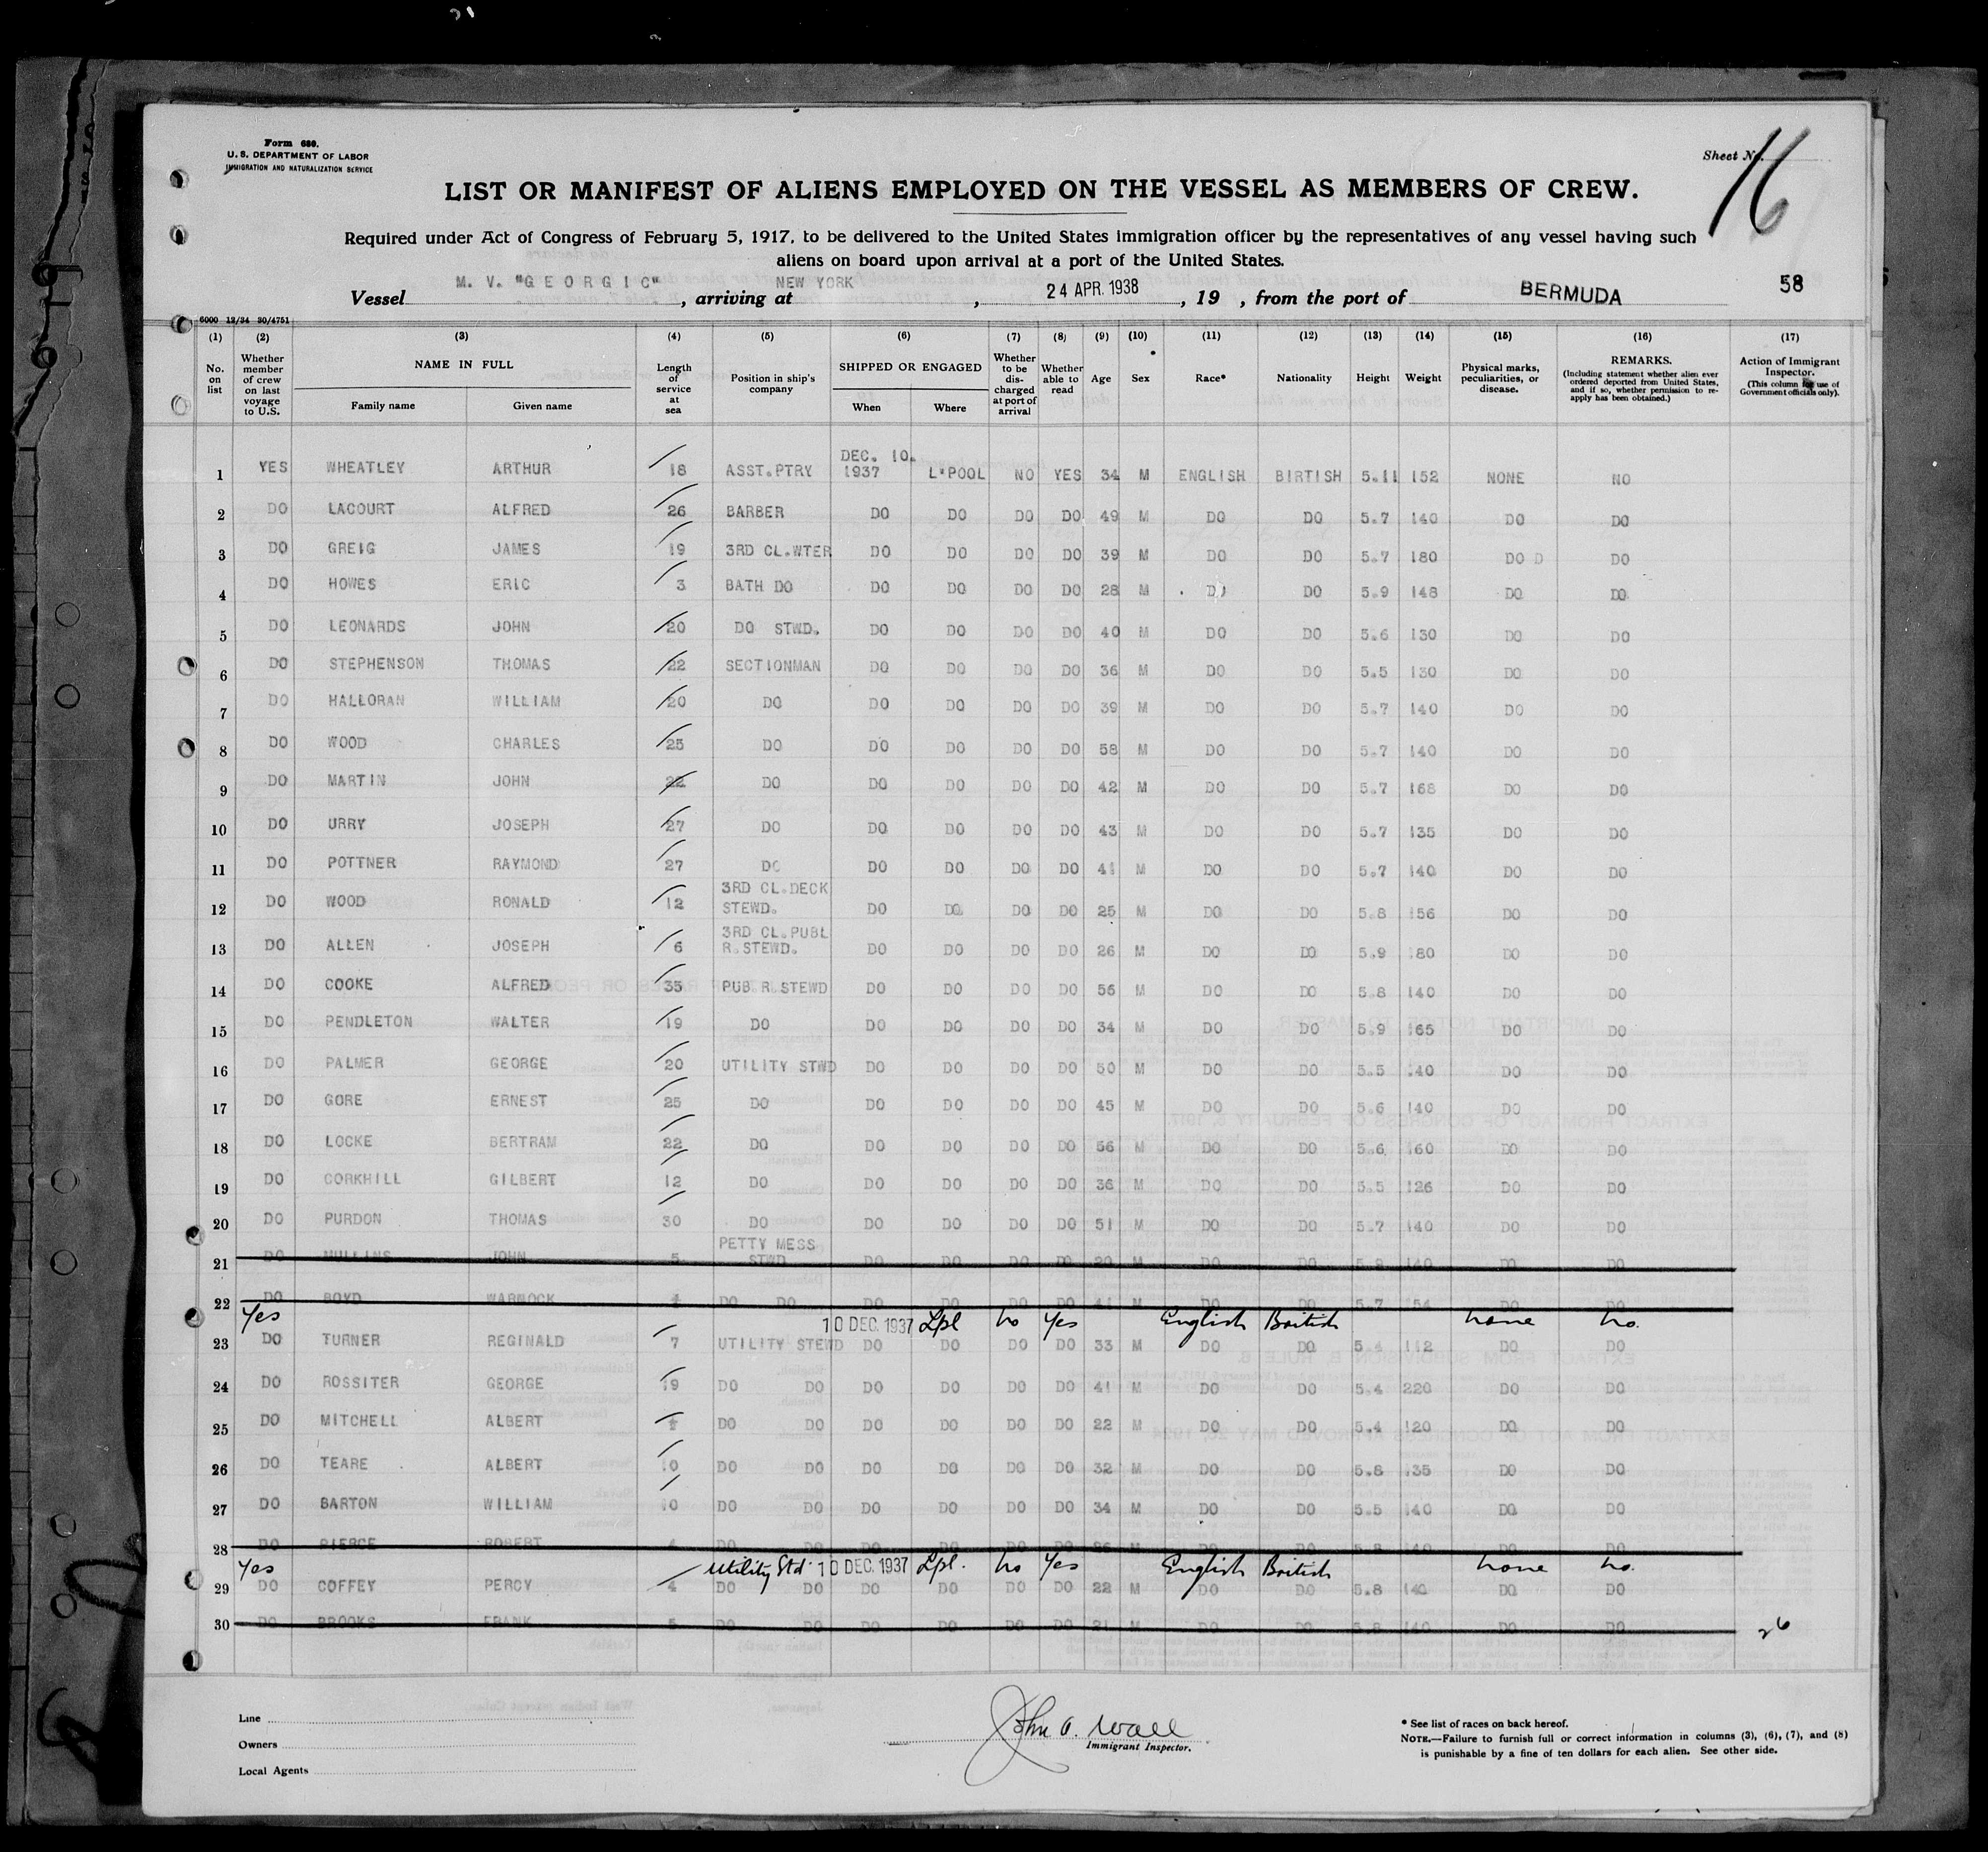 Form 680.
U. S. DEPARTMENT OF LABOR
IMMIGRATION AND NATURALIZATION SERVICE
Sheet No. 16
LIST OR MANIFEST OF ALIENS EMPLOYED ON THE VESSEL AS MEMBERS OF CREW.
Required under Act of Congress of February 5, 1917, to be delivered to the United States immigration officer by the representatives of any vessel having such
aliens on board upon arrival at a port of the United States.
Vessel M. V. "GEORGIC", arriving at NEW YORK, 24 APR. 1938, 19 , from the port of BERMUDA 58
6000 12/34 30/4751
(1) (2) (3) (4) (5) (6) (7) (8) (9) (10) (11) (12) (13) (14) (15) (16) (17)
No. on list | Whether member of crew on last voyage to U.S. | NAME IN FULL Family name Given name | Length of service at sea | Position in ship's company | SHIPPED OR ENGAGED When Where | Whether to be discharged at port of arrival | Whether able to read | Age | Sex | Race* | Nationality | Height | Weight | Physical marks, peculiarities, or disease. | REMARKS. (Including statement whether alien ever ordered deported from United States, and if so, whether permission to re-apply has been obtained.) | Action of Immigrant Inspector. (This column for use of Government officials only).
1 YES WHEATLEY ARTHUR 18 ASST.PTRY DEC. 10. 1937 L'POOL NO YES 34 M ENGLISH BIRTISH 5.11 152 NONE NO
2 DO LACOURT ALFRED 26 BARBER DO DO DO DO 49 M DO DO 5.7 140 DO DO
3 DO GREIG JAMES 19 3RD CL.WTER DO DO DO DO 39 M DO DO 5.7 180 DO D DO
4 DO HOWES ERIC 3 BATH DO DO DO DO DO 28 M DO DO 5.9 148 DO DO
5 DO LEONARDS JOHN 20 DO STWD. DO DO DO DO 40 M DO DO 5.6 130 DO DO
6 DO STEPHENSON THOMAS 22 SECTIONMAN DO DO DO DO 36 M DO DO 5.5 130 DO DO
7 DO HALLORAN WILLIAM 20 DO DO DO DO DO 39 M DO DO 5.7 140 DO DO
8 DO WOOD CHARLES 25 DO DO DO DO DO 58 M DO DO 5.7 140 DO DO
9 DO MARTIN JOHN 22 DO DO DO DO DO 42 M DO DO 5.7 168 DO DO
10 DO URRY JOSEPH 27 DO DO DO DO DO 43 M DO DO 5.7 135 DO DO
11 DO POTTNER RAYMOND 27 DO DO DO DO DO 41 M DO DO 5.7 140 DO DO
12 DO WOOD RONALD 12 3RD CL.DECK STEWD. DO DO DO DO 25 M DO DO 5.8 156 DO DO
13 DO ALLEN JOSEPH 6 3RD CL.PUBL R.STEWD. DO DO DO DO 26 M DO DO 5.9 180 DO DO
14 DO COOKE ALFRED 35 PUB.R.STEWD DO DO DO DO 56 M DO DO 5.8 140 DO DO
15 DO PENDLETON WALTER 19 DO DO DO DO DO 34 M DO DO 5.9 165 DO DO
16 DO PALMER GEORGE 20 UTILITY STWD DO DO DO DO 50 M DO DO 5.5 140 DO DO
17 DO GORE ERNEST 25 DO DO DO DO DO 45 M DO DO 5.6 140 DO DO
18 DO LOCKE BERTRAM 22 DO DO DO DO DO 56 M DO DO 5.6 160 DO DO
19 DO CORKHILL GILBERT 12 DO DO DO DO DO 36 M DO DO 5.5 126 DO DO
20 DO PURDON THOMAS 30 DO DO DO DO DO 51 M DO DO 5.7 140 DO DO
21 DO MULLINS JOHN 5 PETTY MESS STWD DO DO DO DO M DO DO 140 DO DO
22 DO BOYD WARNOCK DO DO DO DO DO DO 41 M DO DO 5.7 DO DO
Yes 10 DEC. 1937 Lpl no Yes English British none no.
23 DO TURNER REGINALD 7 UTILITY STEWD DO DO DO DO 33 M DO DO 5.4 112 DO DO
24 DO ROSSITER GEORGE 19 DO DO DO DO DO DO 41 M DO DO 5.4 220 DO DO
25 DO MITCHELL ALBERT DO DO DO DO DO DO 22 M DO DO 5.4 120 DO DO
26 DO TEARE ALBERT 10 DO DO DO DO DO DO 32 M DO DO 5.8 135 DO DO
27 DO BARTON WILLIAM 10 DO DO DO DO DO DO 34 M DO DO 5.5 140 DO DO
28 DO PIERCE ROBERT 4 DO DO DO DO DO DO M DO DO 5.8 140 DO DO
Yes Utility Std 10 DEC. 1937 Lpl. no Yes English British none no.
29 DO COFFEY PERCY 4 DO DO DO DO DO DO 22 M DO DO 5.8 140 DO DO
30 DO BROOKS FRANK 5 DO DO DO DO DO DO 21 M DO DO 140 DO DO 26
Line
Owners
Local Agents
John A. Wall
Immigrant Inspector.
* See list of races on back hereof.
NOTE.—Failure to furnish full or correct information in columns (3), (6), (7), and (8)
is punishable by a fine of ten dollars for each alien. See other side.